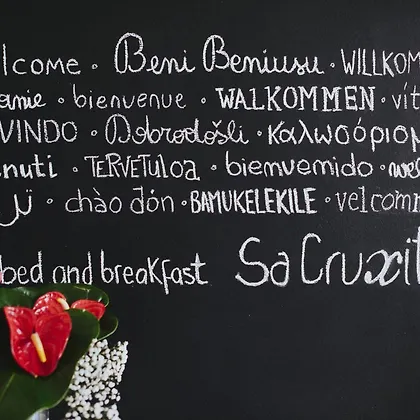 lcome · Beni Beniusu · WILLKOM
anie · bienvenue · WALKOMMEN · vít
VINDO · Dobrodošli · καλωσόρισμ
nuti · TERVETULOA · bienvemido · we
chào đón · BAMUKELEKILE · velcomm
bed and breakfast Sa Cruxit